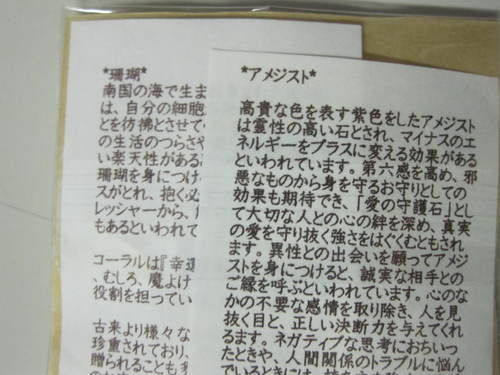 *珊瑚*
南国の海で生ま
は、自分の細胞
とを彷彿とさせて
の生活のつらさや
い楽天性がある
珊瑚を身につけ
スがとれ、抱く必
レッシャーから、
もあるといわれて
コーラルは『幸運
、むしろ、魔よけ
役割を担ってい
古来より様々な
珍重されており、
贈られることも多
*アメジスト*
高貴な色を表す紫色をしたアメジスト
は霊性の高い石とされ、マイナスのエ
ネルギーをプラスに変える効果がある
といわれています。第六感を高め、邪
悪なものから身を守るお守りとしての
効果も期待でき、「愛の守護石」とし
て大切な人との心の絆を深め、真実
の愛を守り抜く強さをはぐくむともされ
ます。異性との出会いを願ってアメジ
ストを身につけると、誠実な相手との
ご縁を呼ぶといわれています。心のな
かの不要な感情を取り除き、人を見
抜く目と、正しい決断力を与えてくれ
るます。ネガティブな思考におちいっ
たときや、人間関係のトラブルに悩ん
でいるときには、持